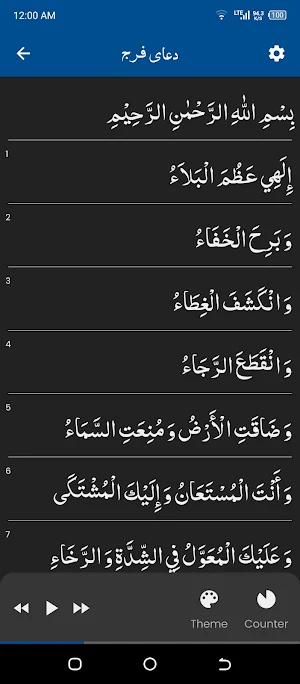 12:00 AM LTE 94.3 K/S 100
دعای فرج
بِسْمِ اللَّهِ الرَّحْمٰنِ الرَّحِيْمِ
1
إِلَهِي عَظُمَ الْبَلاَءُ
2
وَ بَرِحَ الْخَفَاءُ
3
وَ انْكَشَفَ الْغِطَاءُ
4
وَ انْقَطَعَ الرَّجَاءُ
5
وَ ضَاقَتِ الْأَرْضُ وَ مُنِعَتِ السَّمَاءُ
6
وَ أَنْتَ الْمُسْتَعَانُ وَ إِلَيْكَ الْمُشْتَكَى
7
وَ عَلَيْكَ الْمُعَوَّلُ فِي الشِّدَّةِ وَ الرَّخَاءِ
Theme Counter